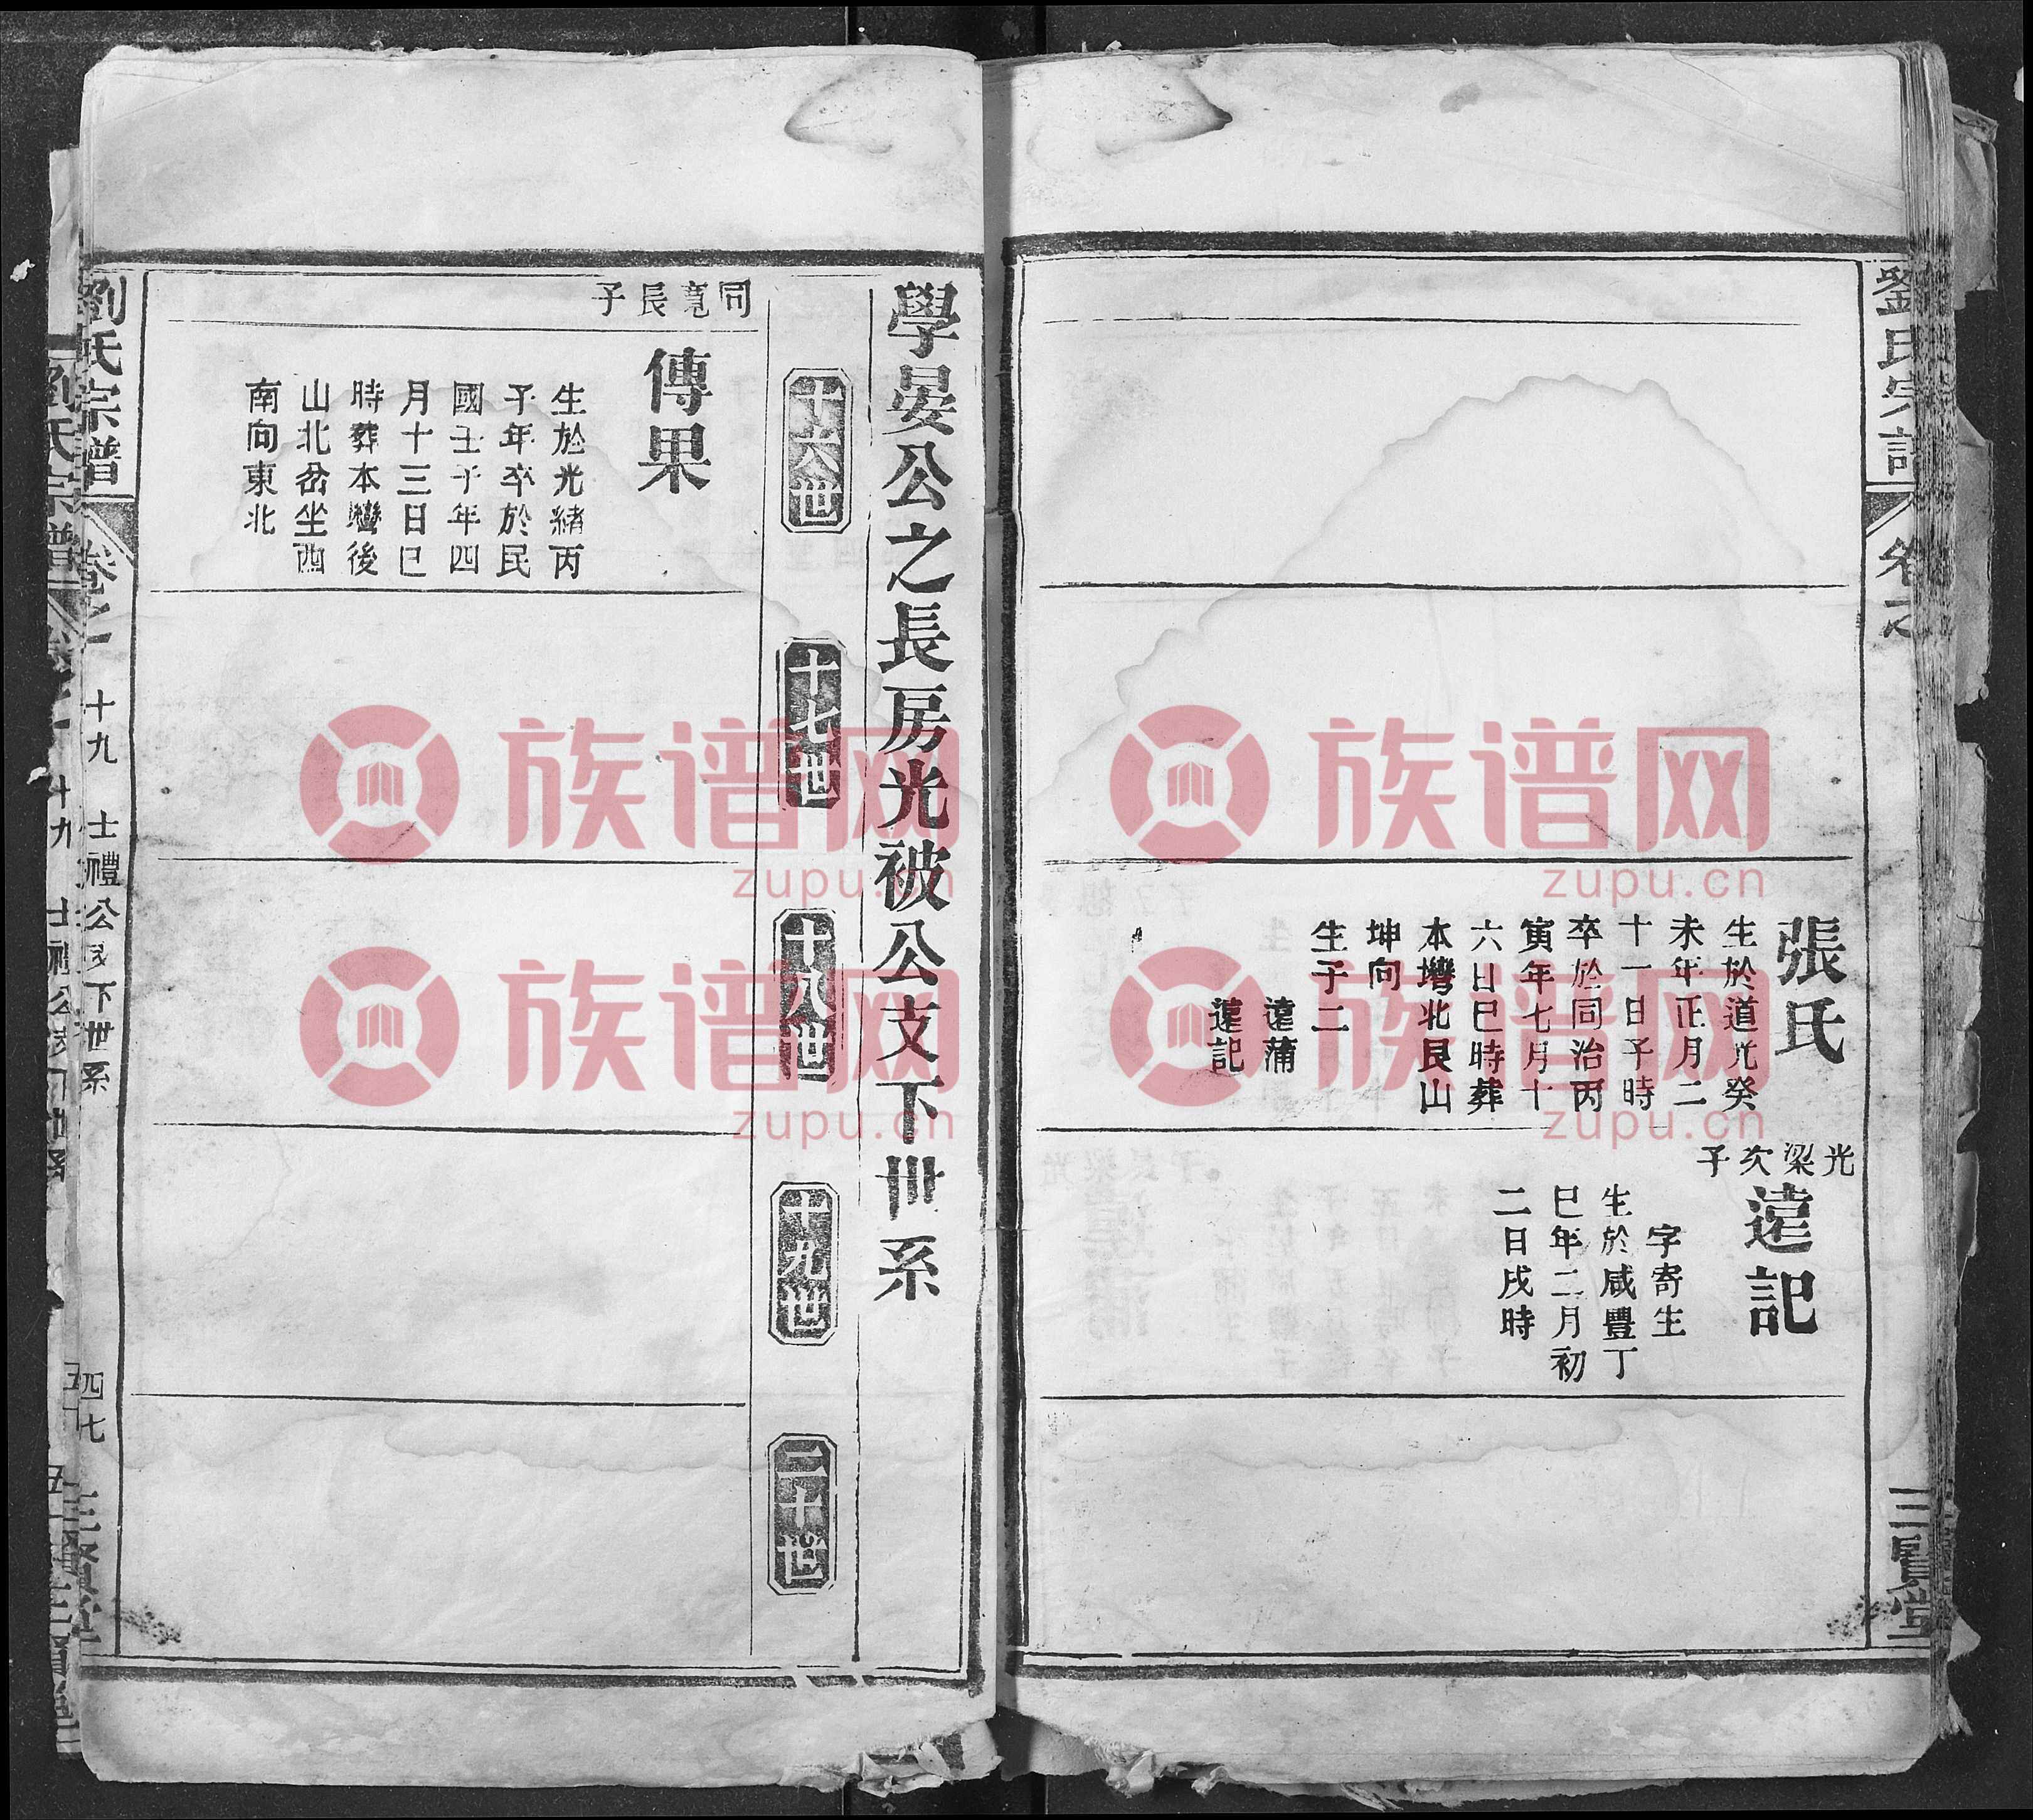 劉氏宗譜
卷之
三賢堂
張氏
生於道光癸
未年正月二
十一日子時
卒於同治丙
寅年七月十
六日巳時葬
本灣北艮山
坤向
生子二
遠蒲
遠記
光梁次子
遠記
字寄生
生於咸豐丁
巳年二月初
二日戌時
學晏公之長房光被公支下世系
十六世
十七世
十八世
十九世
二十世
同寬長子
傳果
生於光緒丙
子年卒於民
國壬子年四
月十三日巳
時葬本灣後
山北岔坐西
南向東北
劉氏宗譜
卷之
十九
士禮公支下世系
四七
三賢堂
劉氏宗譜
十九
族谱网
zupu.cn
族谱网
zupu.cn
族谱网
zupu.cn
族谱网
zupu.cn